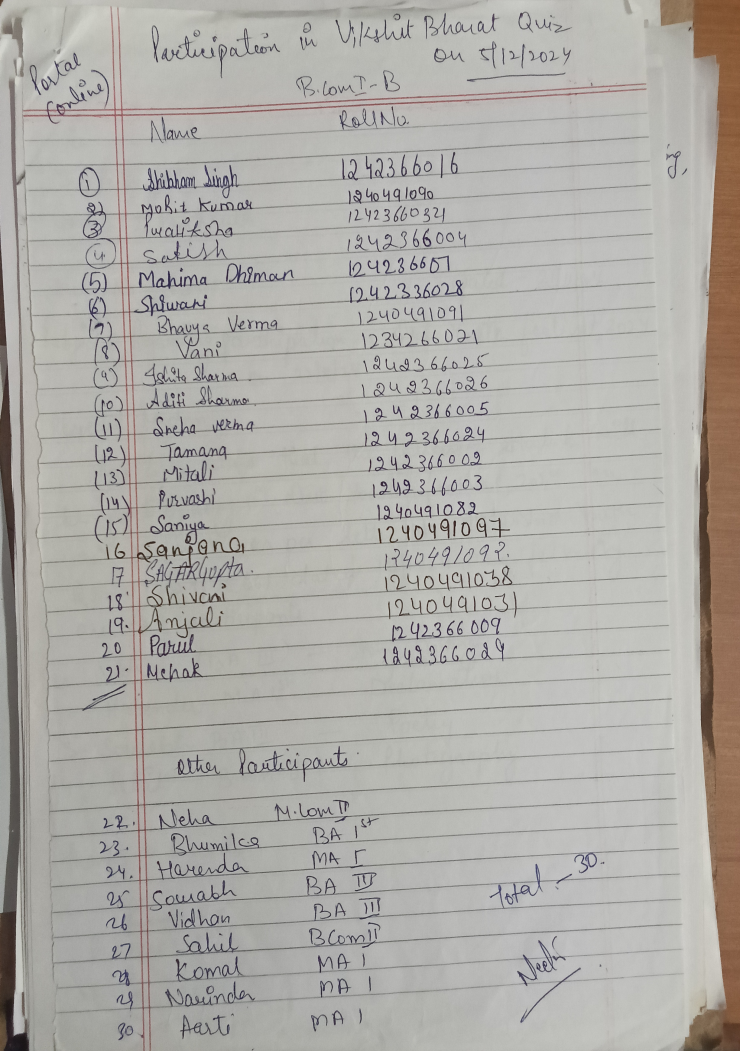 Portal
(online)
Participation in Vikshit Bharat Quiz
on 5/12/2024
B.Com I-B
Name Roll No.
1 Shibham Singh 1242366016
2) Mohit Kumar 1240491090
3 12423660321
4 Satish 1242366004
(5) Mahima Dhiman 124236607
(6) Shiwani 1242336028
(7) Bhavya Verma 1240491091
(8) Vani 1234266021
(9) Ishita Sharma. 1242366025
(10) Aditi Sharma. 1242366026
(11) Sneha verma 1242366005
(12) Tamanna 1242366024
(13) Mitali 1242366002
(14) Purvashi 1242366003
(15) Saniya 1240491082
16 Sanjana 1240491097
17 SAGAR Gupta. 1240491092.
18 Shivani 1240491038
19. Anjali 1240491031
20 Parul 1242366009
21. Mehak 1242366029
Other Participants.
22. Neha M.Com II
23. Bhumika BA Ist
24. Harenda MA I
25 Sourabh BA III
26 Vidhan BA III
27 Sahil BCom II
28 Komal MA I
29 Narinda MA I
30. Aarti MA I
Total - 30.
ing,